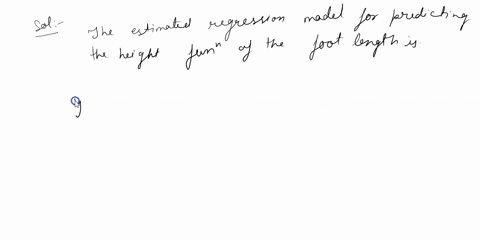 Sol:- The estimated regression model for predicting
the height funⁿ of the foot length is